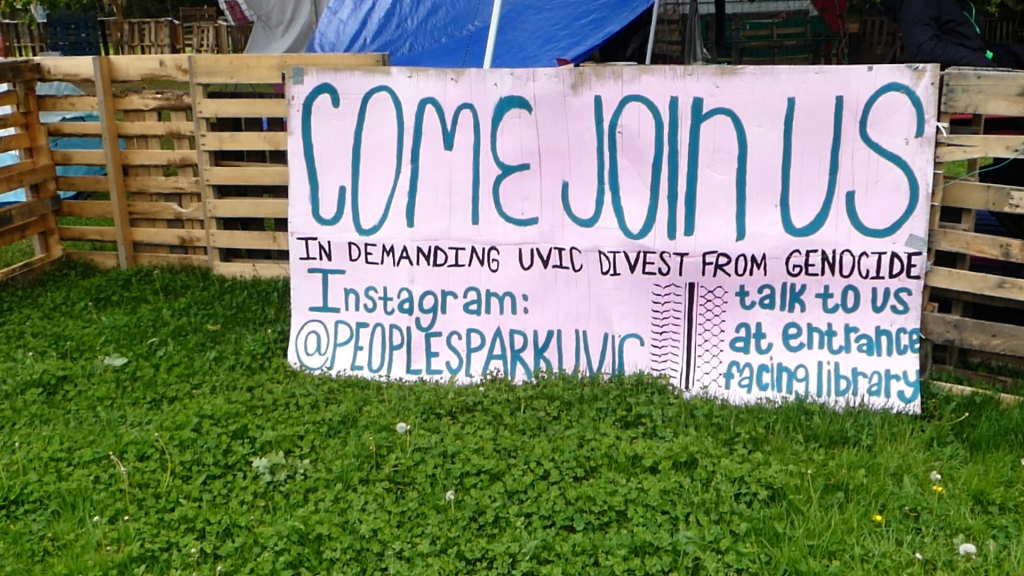 COME JOIN US
IN DEMANDING UVIC DIVEST FROM GENOCIDE
Instagram:
@PEOPLESPARKUVIC
talk to us
at entrance
facing library